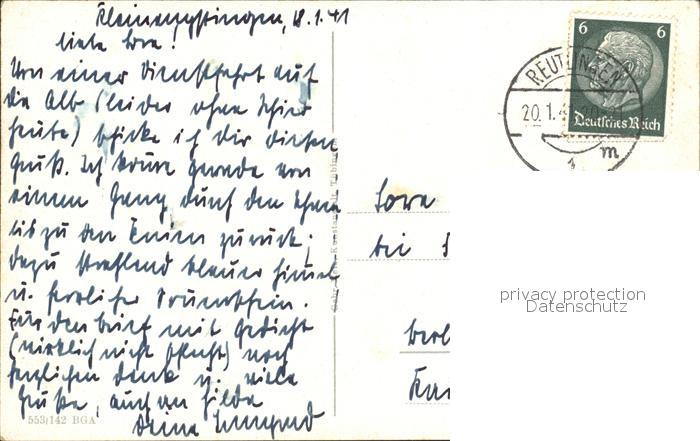 Kleinengstingen, 18.1.41
liebe Lore!
Von einer Dienstfahrt auf
die Alb (leider ohne Schier
heute) schicke ich dir diesen
Gruß. Ich komme gerade von
einem Gang durch den Schnee
bis zu den Knien zurück;
dazu strahlend blauer Himmel
u. herrlicher Sonnenschein.
Für den Brief mit Gedicht
(wirklich nicht schlecht) noch
herzlichen Dank u. viele
Grüße, auch an Hilda
Deine
553/142 BGA
Gebr. Metz, Kunstanstalt, Tübingen
6 6
Deutsches Reich
REUTLINGEN
20.1.4
1 m
Lore
bei
Berl
privacy protection
Datenschutz